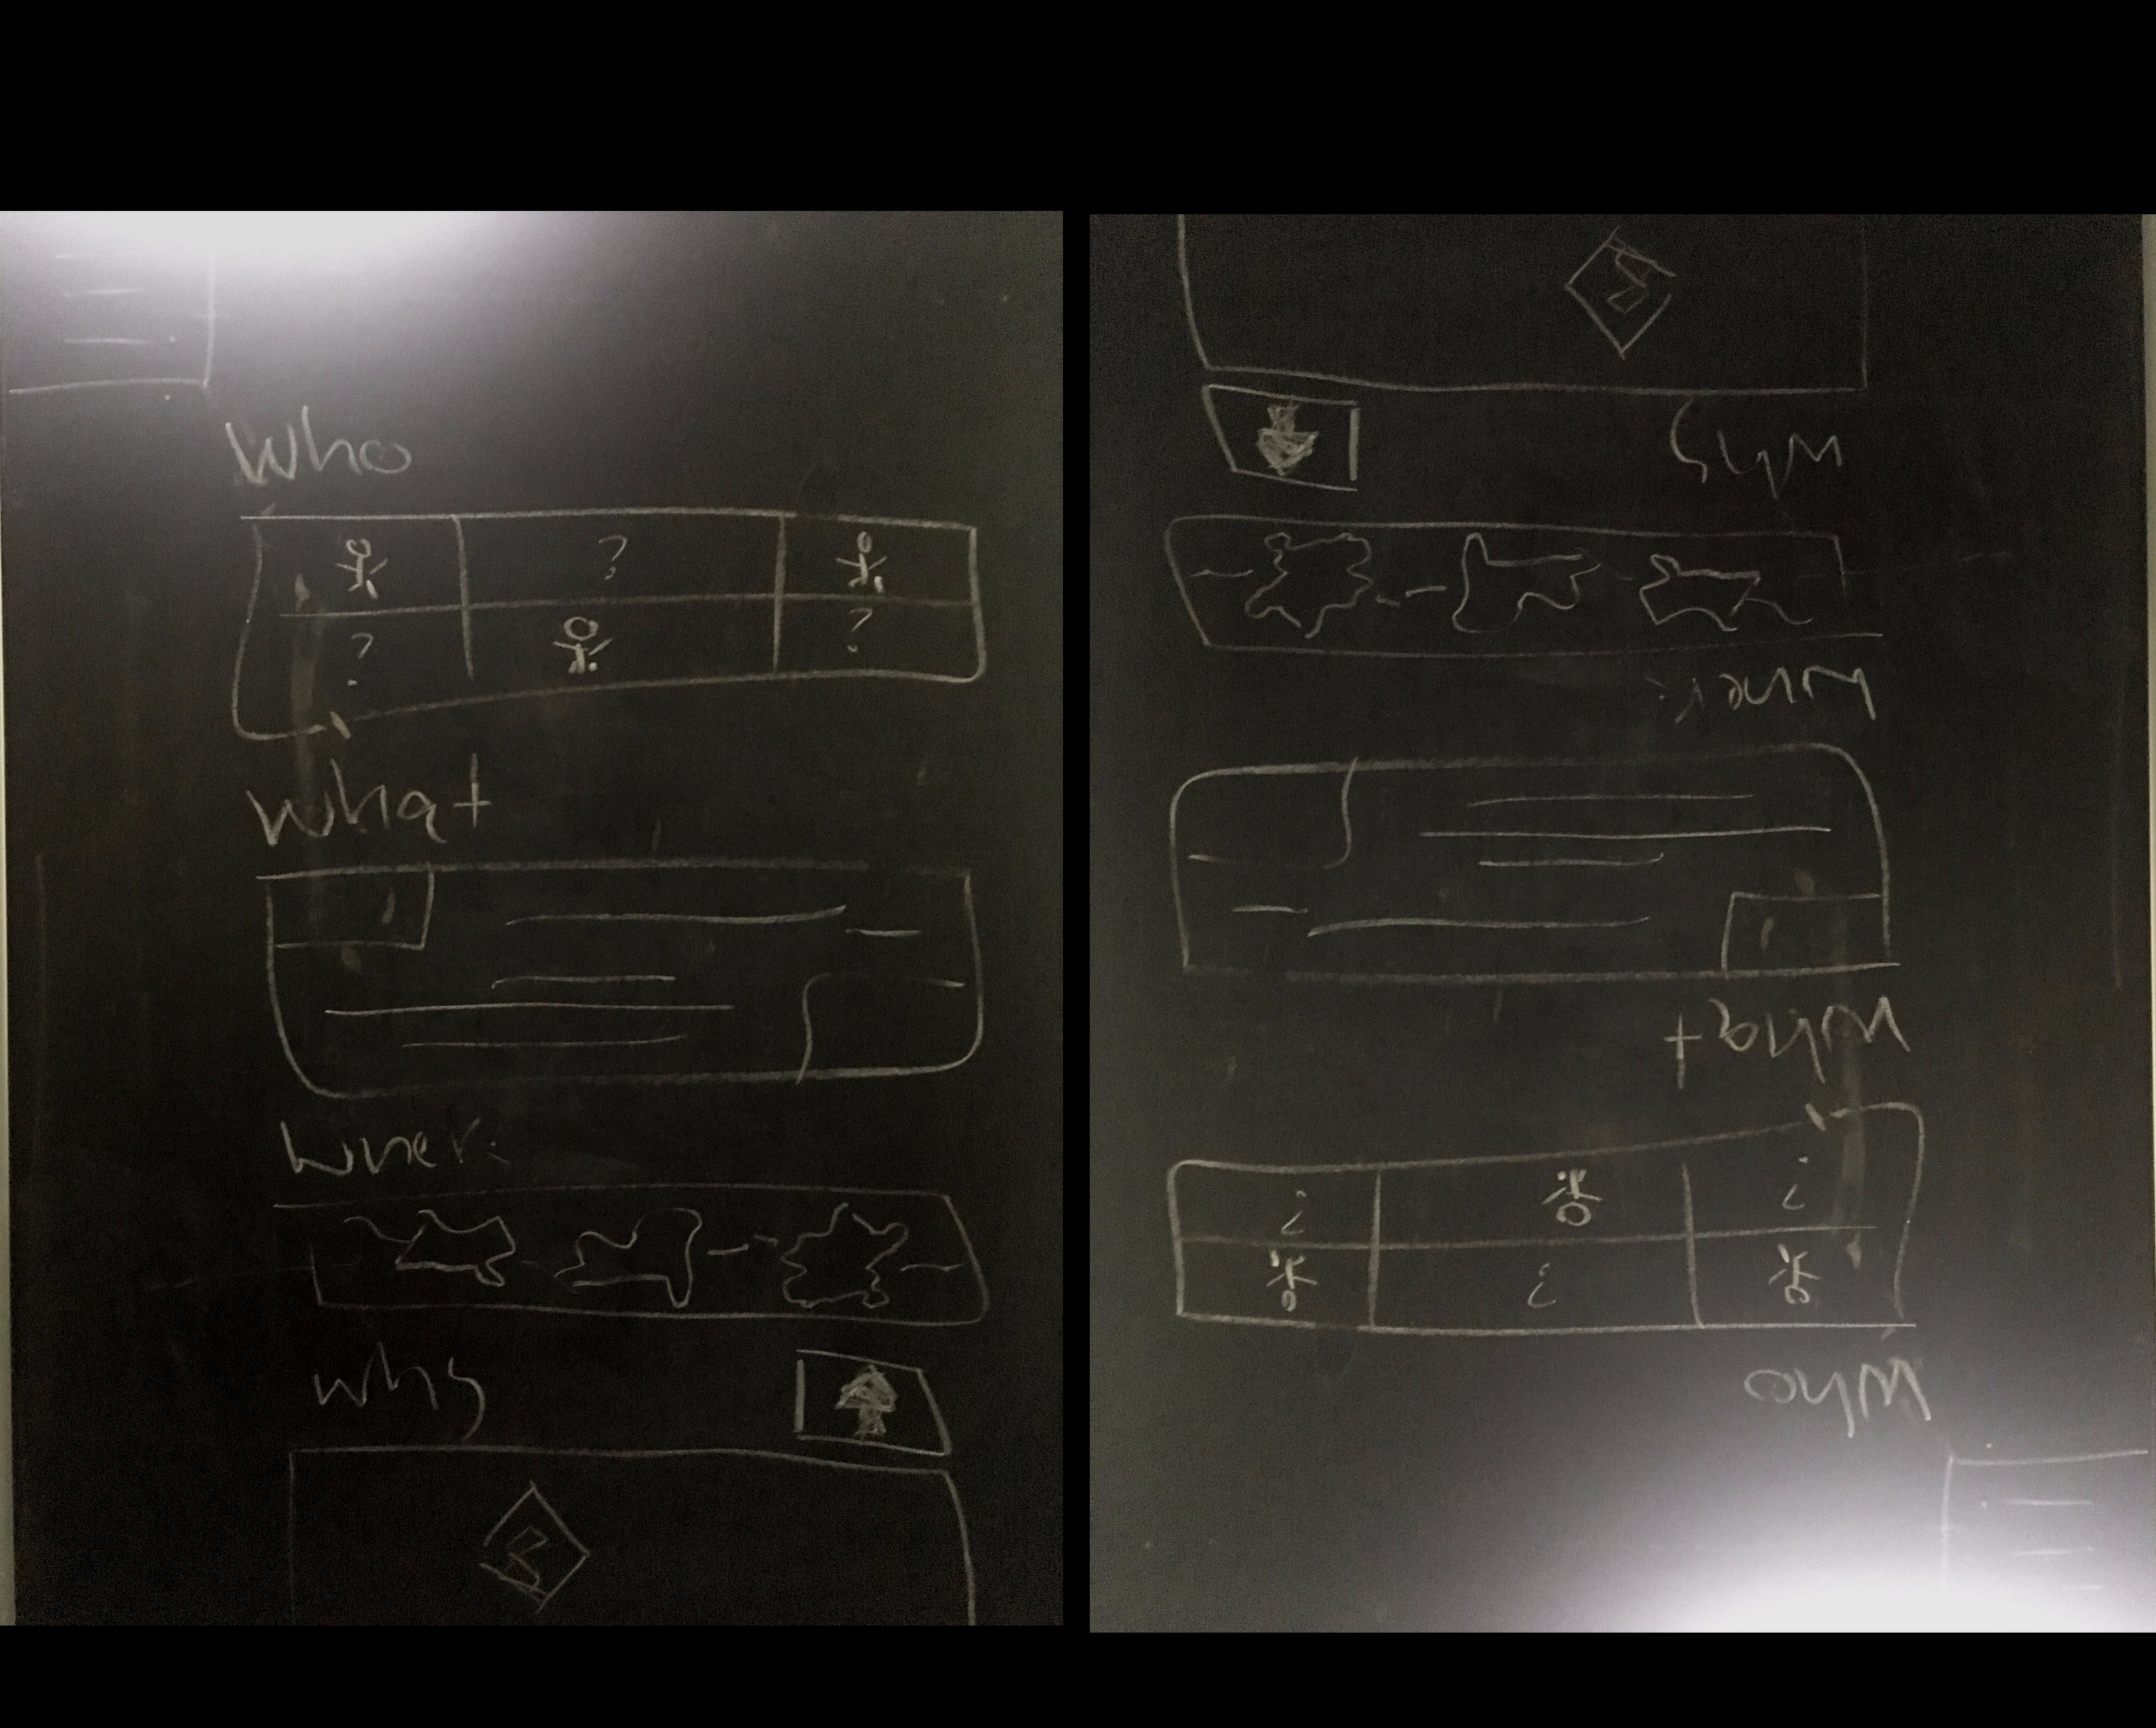 Who
?
? ?
What
Wher
why
why
Wher
What
? ?
?
Who